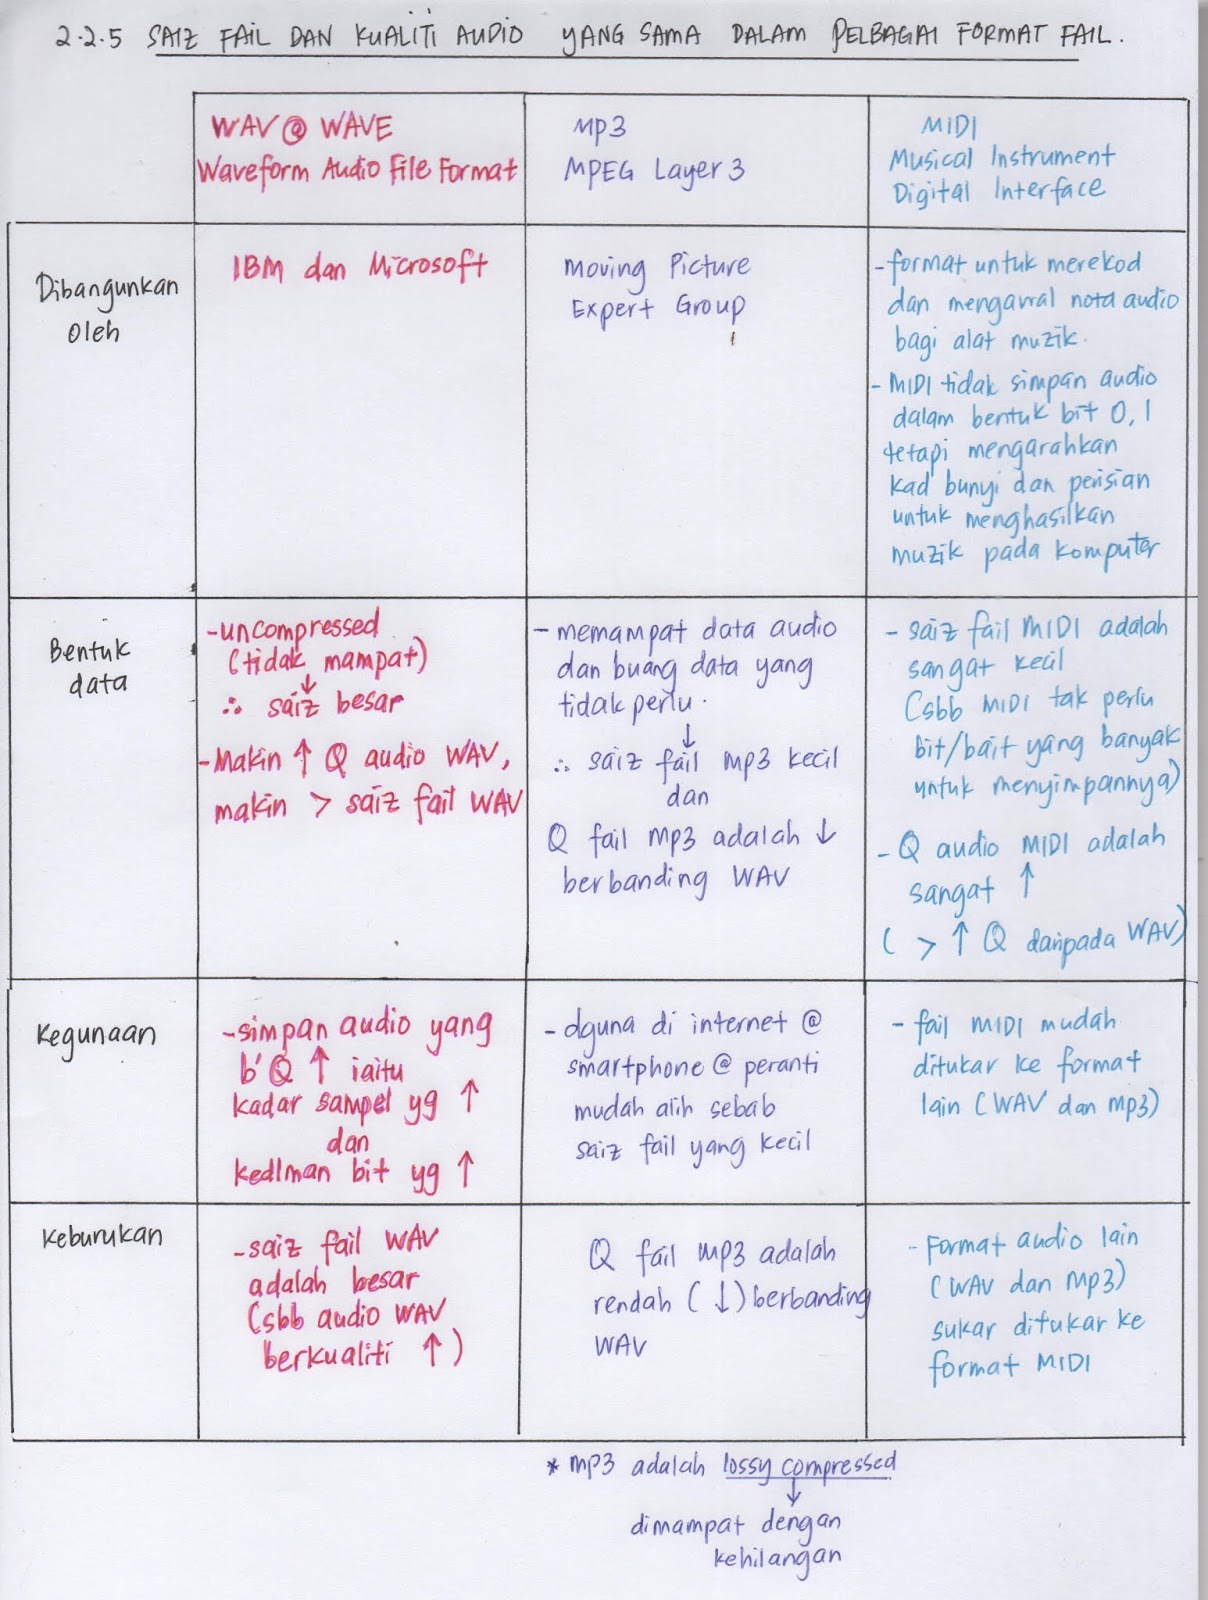 2.2.5 SAIZ FAIL DAN KUALITI AUDIO YANG SAMA DALAM PELBAGAI FORMAT FAIL.
WAV @ WAVE
Waveform Audio File Format
Mp3
MPEG Layer 3
MIDI
Musical Instrument
Digital Interface
Dibangunkan
oleh
IBM dan Microsoft
Moving Picture
Expert Group
- format untuk merekod
dan mengawal nota audio
bagi alat muzik.
- MIDI tidak simpan audio
dalam bentuk bit 0, 1
tetapi mengarahkan
kad bunyi dan perisian
untuk menghasilkan
muzik pada komputer
Bentuk
data
- uncompressed
(tidak mampat)
↓
∴ saiz besar
- Makin ↑ Q audio WAV,
makin > saiz fail WAV
- memampat data audio
dan buang data yang
tidak perlu.
↓
∴ saiz fail mp3 kecil
dan
Q fail mp3 adalah ↓
berbanding WAV
- saiz fail MIDI adalah
sangat kecil
(sbb MIDI tak perlu
bit/bait yang banyak
untuk menyimpannya)
- Q audio MIDI adalah
sangat ↑
( > ↑ Q daripada WAV)
Kegunaan
- simpan audio yang
b' Q ↑ iaitu
kadar sampel yg ↑
dan
kedlman bit yg ↑
- dguna di internet @
smartphone @ peranti
mudah alih sebab
saiz fail yang kecil
- fail MIDI mudah
ditukar ke format
lain (WAV dan mp3)
Keburukan
- saiz fail WAV
adalah besar
(sbb audio WAV
berkualiti ↑)
Q fail mp3 adalah
rendah (↓) berbanding
WAV
- Format audio lain
(WAV dan Mp3)
sukar ditukar ke
format MIDI
* mp3 adalah lossy compressed
↓
dimampat dengan
kehilangan